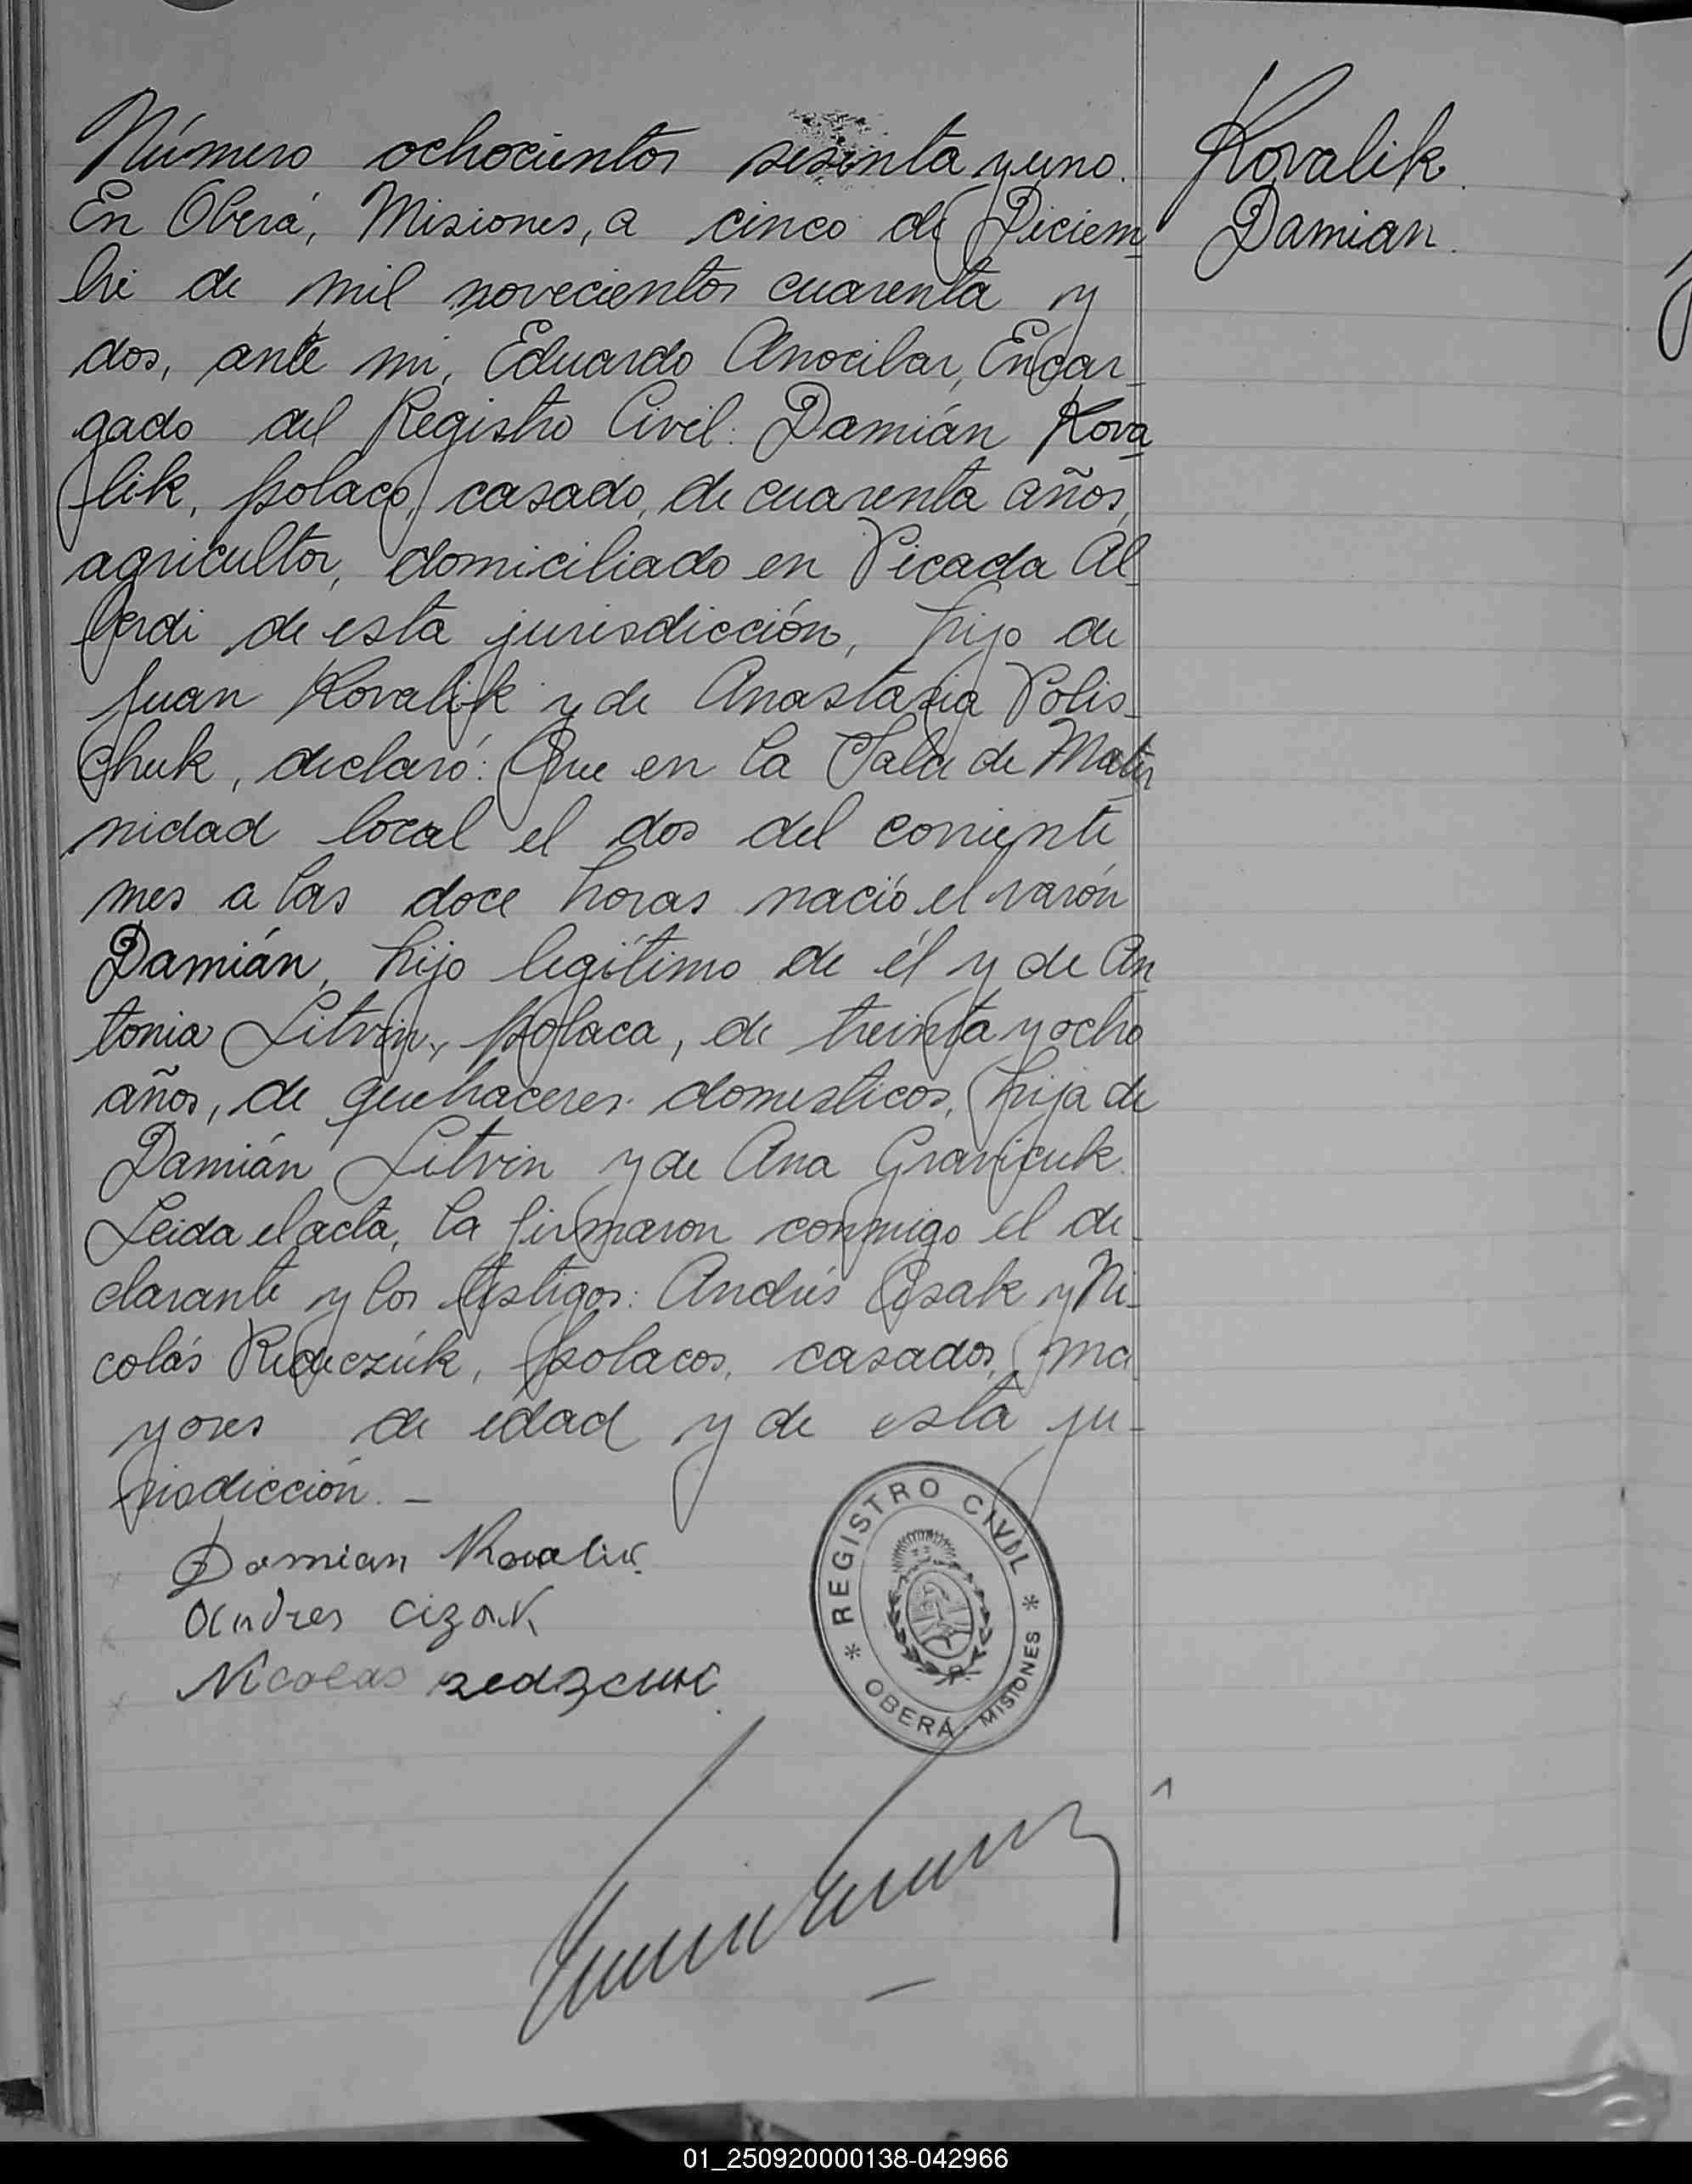 Número ochocientos sesenta y uno.
Kovalik
Damian.
En Oberá, Misiones, a cinco de Diciem-
bre de mil novecientos cuarenta y
dos, ante mi, Eduardo Anocibar, Encar-
gado del Registro Civil: Damián Kova-
lik, polaco, casado, de cuarenta años,
agricultor, domiciliado en Picada Al-
berdi de esta jurisdicción, hijo de
Juan Kovalik y de Anastasia Polis-
chuk, declaró: Que en la Sala de Mater-
nidad local el dos del corriente
mes a las doce horas nació el varón
Damián, hijo legítimo de él y de An-
tonia Litvin, polaca, de treinta y ocho
años, de quehaceres domesticos, hija de
Damián Litvin y de Ana Gravicuk.
Leida el acta, la firmaron conmigo el de-
clarante y los testigos: Andrés Cisak y Ni-
colás Reduczúk, polacos, casados, ma
yores de edad y de esta ju-
risdicción. —
Damian Kovalik
Andres Cizak
Nicolas
REGISTRO CIVIL
* OBERÁ - MISIONES *
01_250920000138-042966